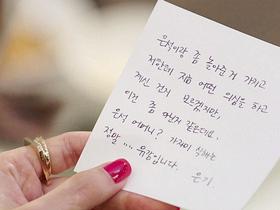 은석이랑 좀 놀아준 거 가지고
저한테 지금 어떤 의심을 하고
계신 건지 모르겠지만,
이건 좀 아닌거 같은데요.
은석 어머니? 가지가지 하시네
정말 .... 유감입니다.
은기